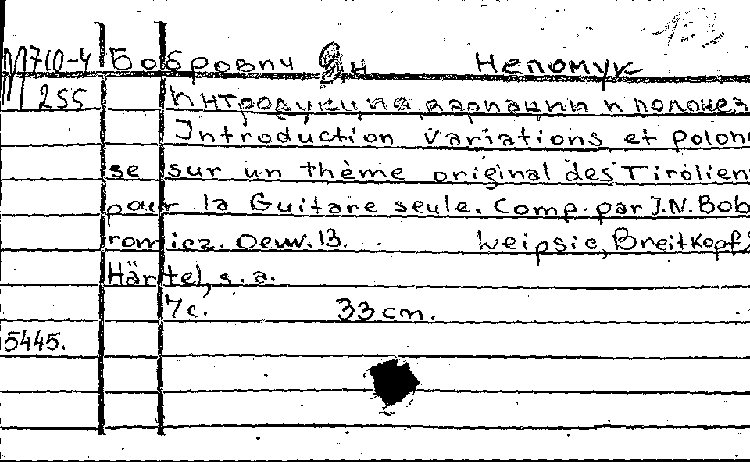 М710-4 Бобрович Ян Непомук
255 Интродукция вариации и полонез
Introduction variations et polon
se sur un thème original des Tirolien
pour la Guitare seule. Comp. par J.N. Bob
rowicz. Oeuv. 13. Leipsic, Breitkopf
Härtel, s. a.
7c. 33 cm.
5445.